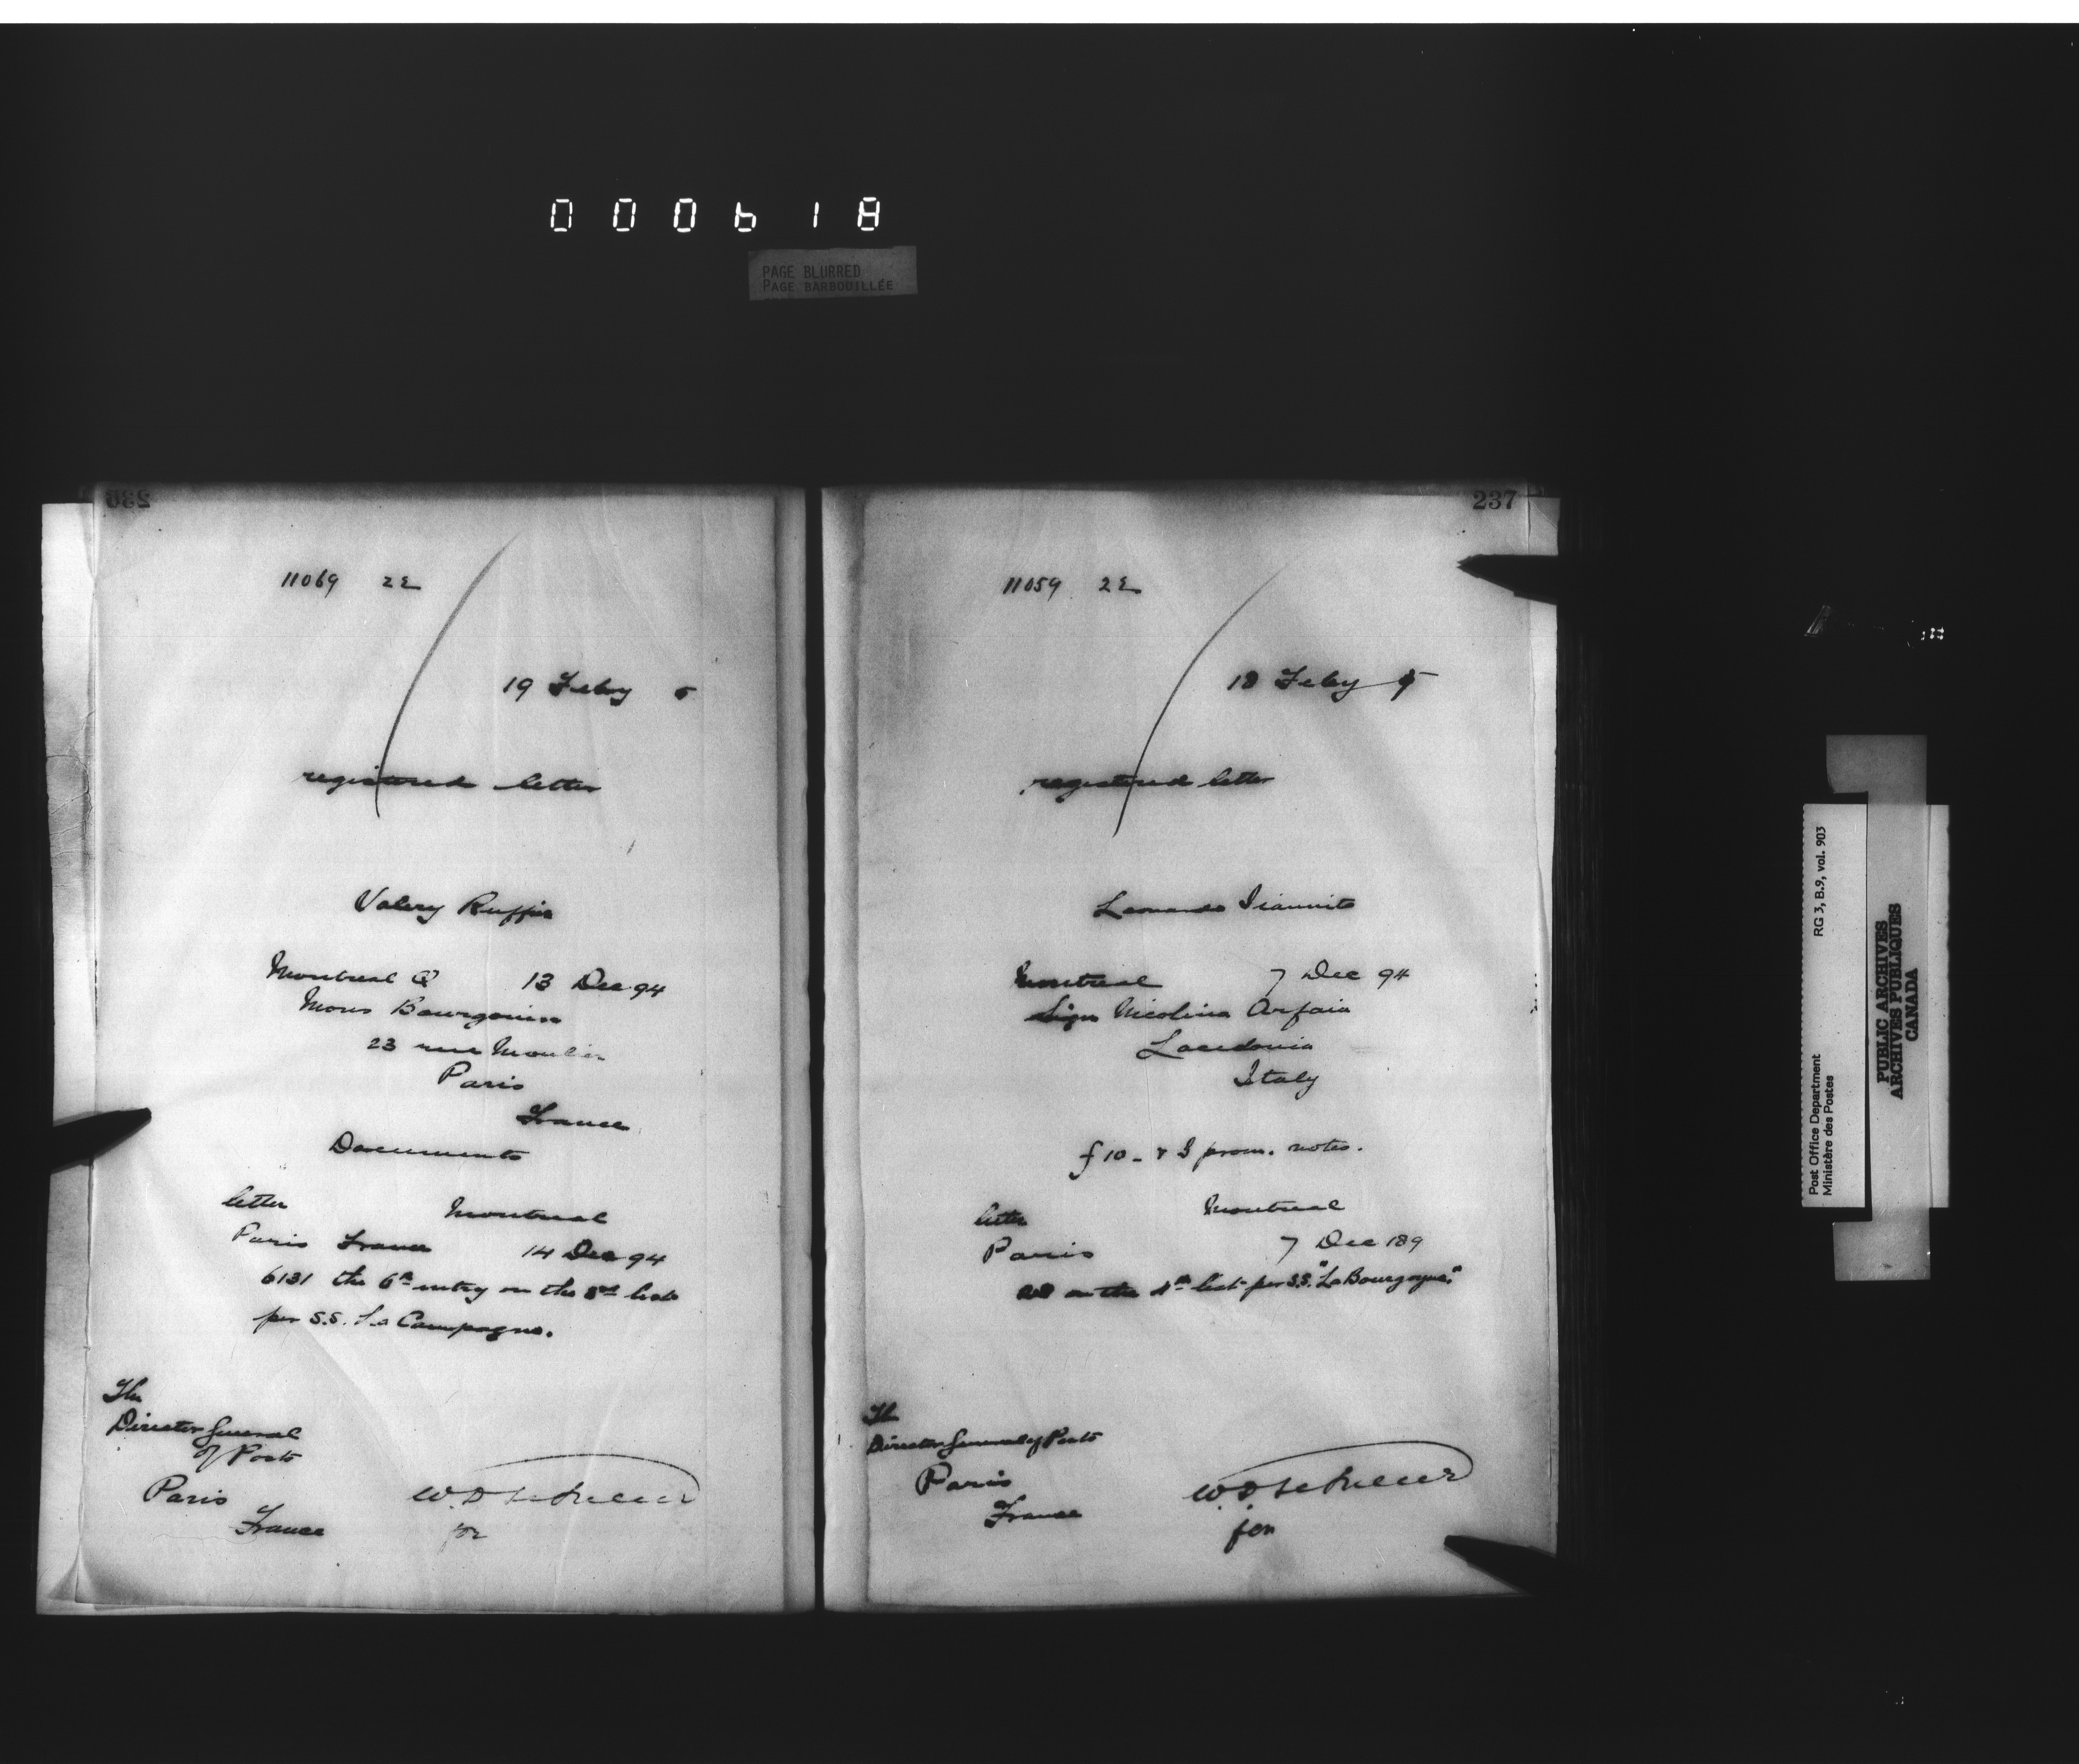 000618
PAGE BLURRED
PAGE BARBOUILLÉE
236
11069 2E
19 Feby 5
registered letter
Valery Ruffin
Montreal Q 13 Dec 94
Mons Bourgouin
23 rue Moulin
Paris
France
Documents
letter Montreal
Paris France 14 Dec 94
6131 the 6th entry on the 3rd list
per S.S. La Campagne.
The
Director General
of Posts
Paris
France
W.D.
for
237
11059 2E
18 Feby 5
registered letter
Leonardo Iiannito
Montreal 7 Dec 94
Sign Nicolina Arfaia
Lacedonia
Italy
f 10 - & I prom. notes.
letter Montreal
Paris 7 Dec 189
on the 4th list per S.S. "La Bourgogne."
The
Director General of Posts
Paris
France
W.D.
for
Post Office Department
Ministère des Postes
RG 3, B.9, vol. 903
PUBLIC ARCHIVES
ARCHIVES PUBLIQUES
CANADA